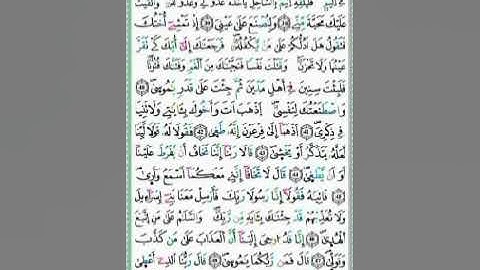 فِي الْيَمِّ فَلْيُلْقِهِ الْيَمُّ بِالسَّاحِلِ يَأْخُذْهُ عَدُوٌّ لِي وَعَدُوٌّ لَهُ وَأَلْقَيْتُ
عَلَيْكَ مَحَبَّةً مِنِّي وَلِتُصْنَعَ عَلَىٰ عَيْنِي ﴿٣٩﴾ إِذْ تَمْشِي أُخْتُكَ
فَتَقُولُ هَلْ أَدُلُّكُمْ عَلَىٰ مَنْ يَكْفُلُهُ فَرَجَعْنَاكَ إِلَىٰ أُمِّكَ كَيْ تَقَرَّ
عَيْنُهَا وَلَا تَحْزَنَ وَقَتَلْتَ نَفْسًا فَنَجَّيْنَاكَ مِنَ الْغَمِّ وَفَتَنَّاكَ فُتُونًا
فَلَبِثْتَ سِنِينَ فِي أَهْلِ مَدْيَنَ ثُمَّ جِئْتَ عَلَىٰ قَدَرٍ يَٰمُوسَىٰ ﴿٤٠﴾
وَاصْطَنَعْتُكَ لِنَفْسِي ﴿٤١﴾ اذْهَبْ أَنْتَ وَأَخُوكَ بِـَٔايَٰتِي وَلَا تَنِيَا
فِي ذِكْرِي ﴿٤٢﴾ اذْهَبَا إِلَىٰ فِرْعَوْنَ إِنَّهُ طَغَىٰ ﴿٤٣﴾ فَقُولَا لَهُ قَوْلًا لَيِّنًا
لَعَلَّهُ يَتَذَكَّرُ أَوْ يَخْشَىٰ ﴿٤٤﴾ قَالَا رَبَّنَا إِنَّنَا نَخَافُ أَنْ يَفْرُطَ عَلَيْنَا
أَوْ أَنْ يَطْغَىٰ ﴿٤٥﴾ قَالَ لَا تَخَافَا إِنَّنِي مَعَكُمَا أَسْمَعُ وَأَرَىٰ
﴿٤٦﴾ فَأْتِيَاهُ فَقُولَا إِنَّا رَسُولَا رَبِّكَ فَأَرْسِلْ مَعَنَا بَنِي إِسْرَٰٓءِيلَ
وَلَا تُعَذِّبْهُمْ قَدْ جِئْنَٰكَ بِـَٔايَةٍ مِنْ رَبِّكَ وَالسَّلَٰمُ عَلَىٰ مَنِ اتَّبَعَ
الْهُدَىٰ ﴿٤٧﴾ إِنَّا قَدْ أُوحِيَ إِلَيْنَا أَنَّ الْعَذَابَ عَلَىٰ مَنْ كَذَّبَ
وَتَوَلَّىٰ ﴿٤٨﴾ قَالَ فَمَنْ رَبُّكُمَا يَٰمُوسَىٰ ﴿٤٩﴾ قَالَ رَبُّنَا الَّذِي أَعْطَىٰ